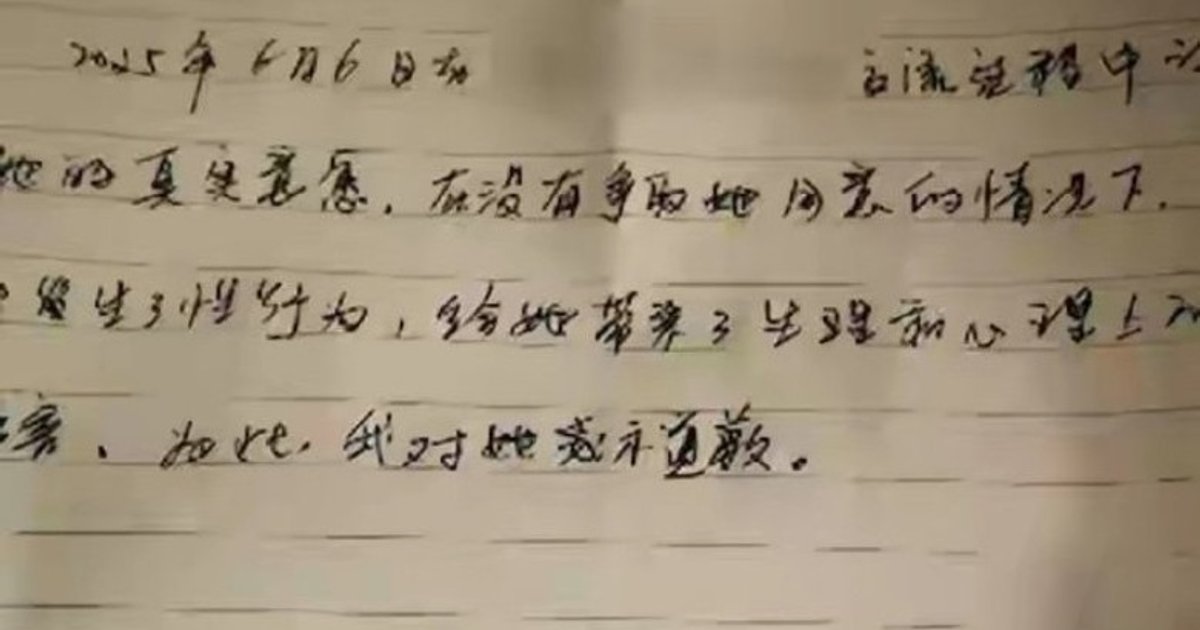 2025年6月6日在 交流过程中
她的真实意愿，在没有争取她同意的情况下，
发生了性行为，给她带来了生理和心理上的
害、为此，我对她表示道歉。